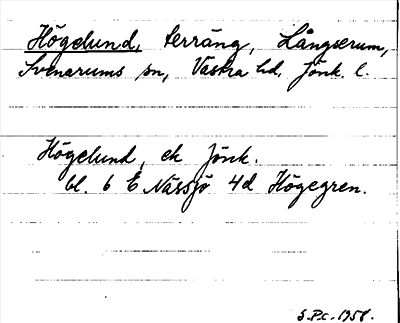 Högelund, terräng, Långserum,
Svenarums sn, Västra hd, Jönk. l.
Högelund, ek Jönk.
bl. 6 E Nässjö 4d Högegren.
S.Ps. 1958.